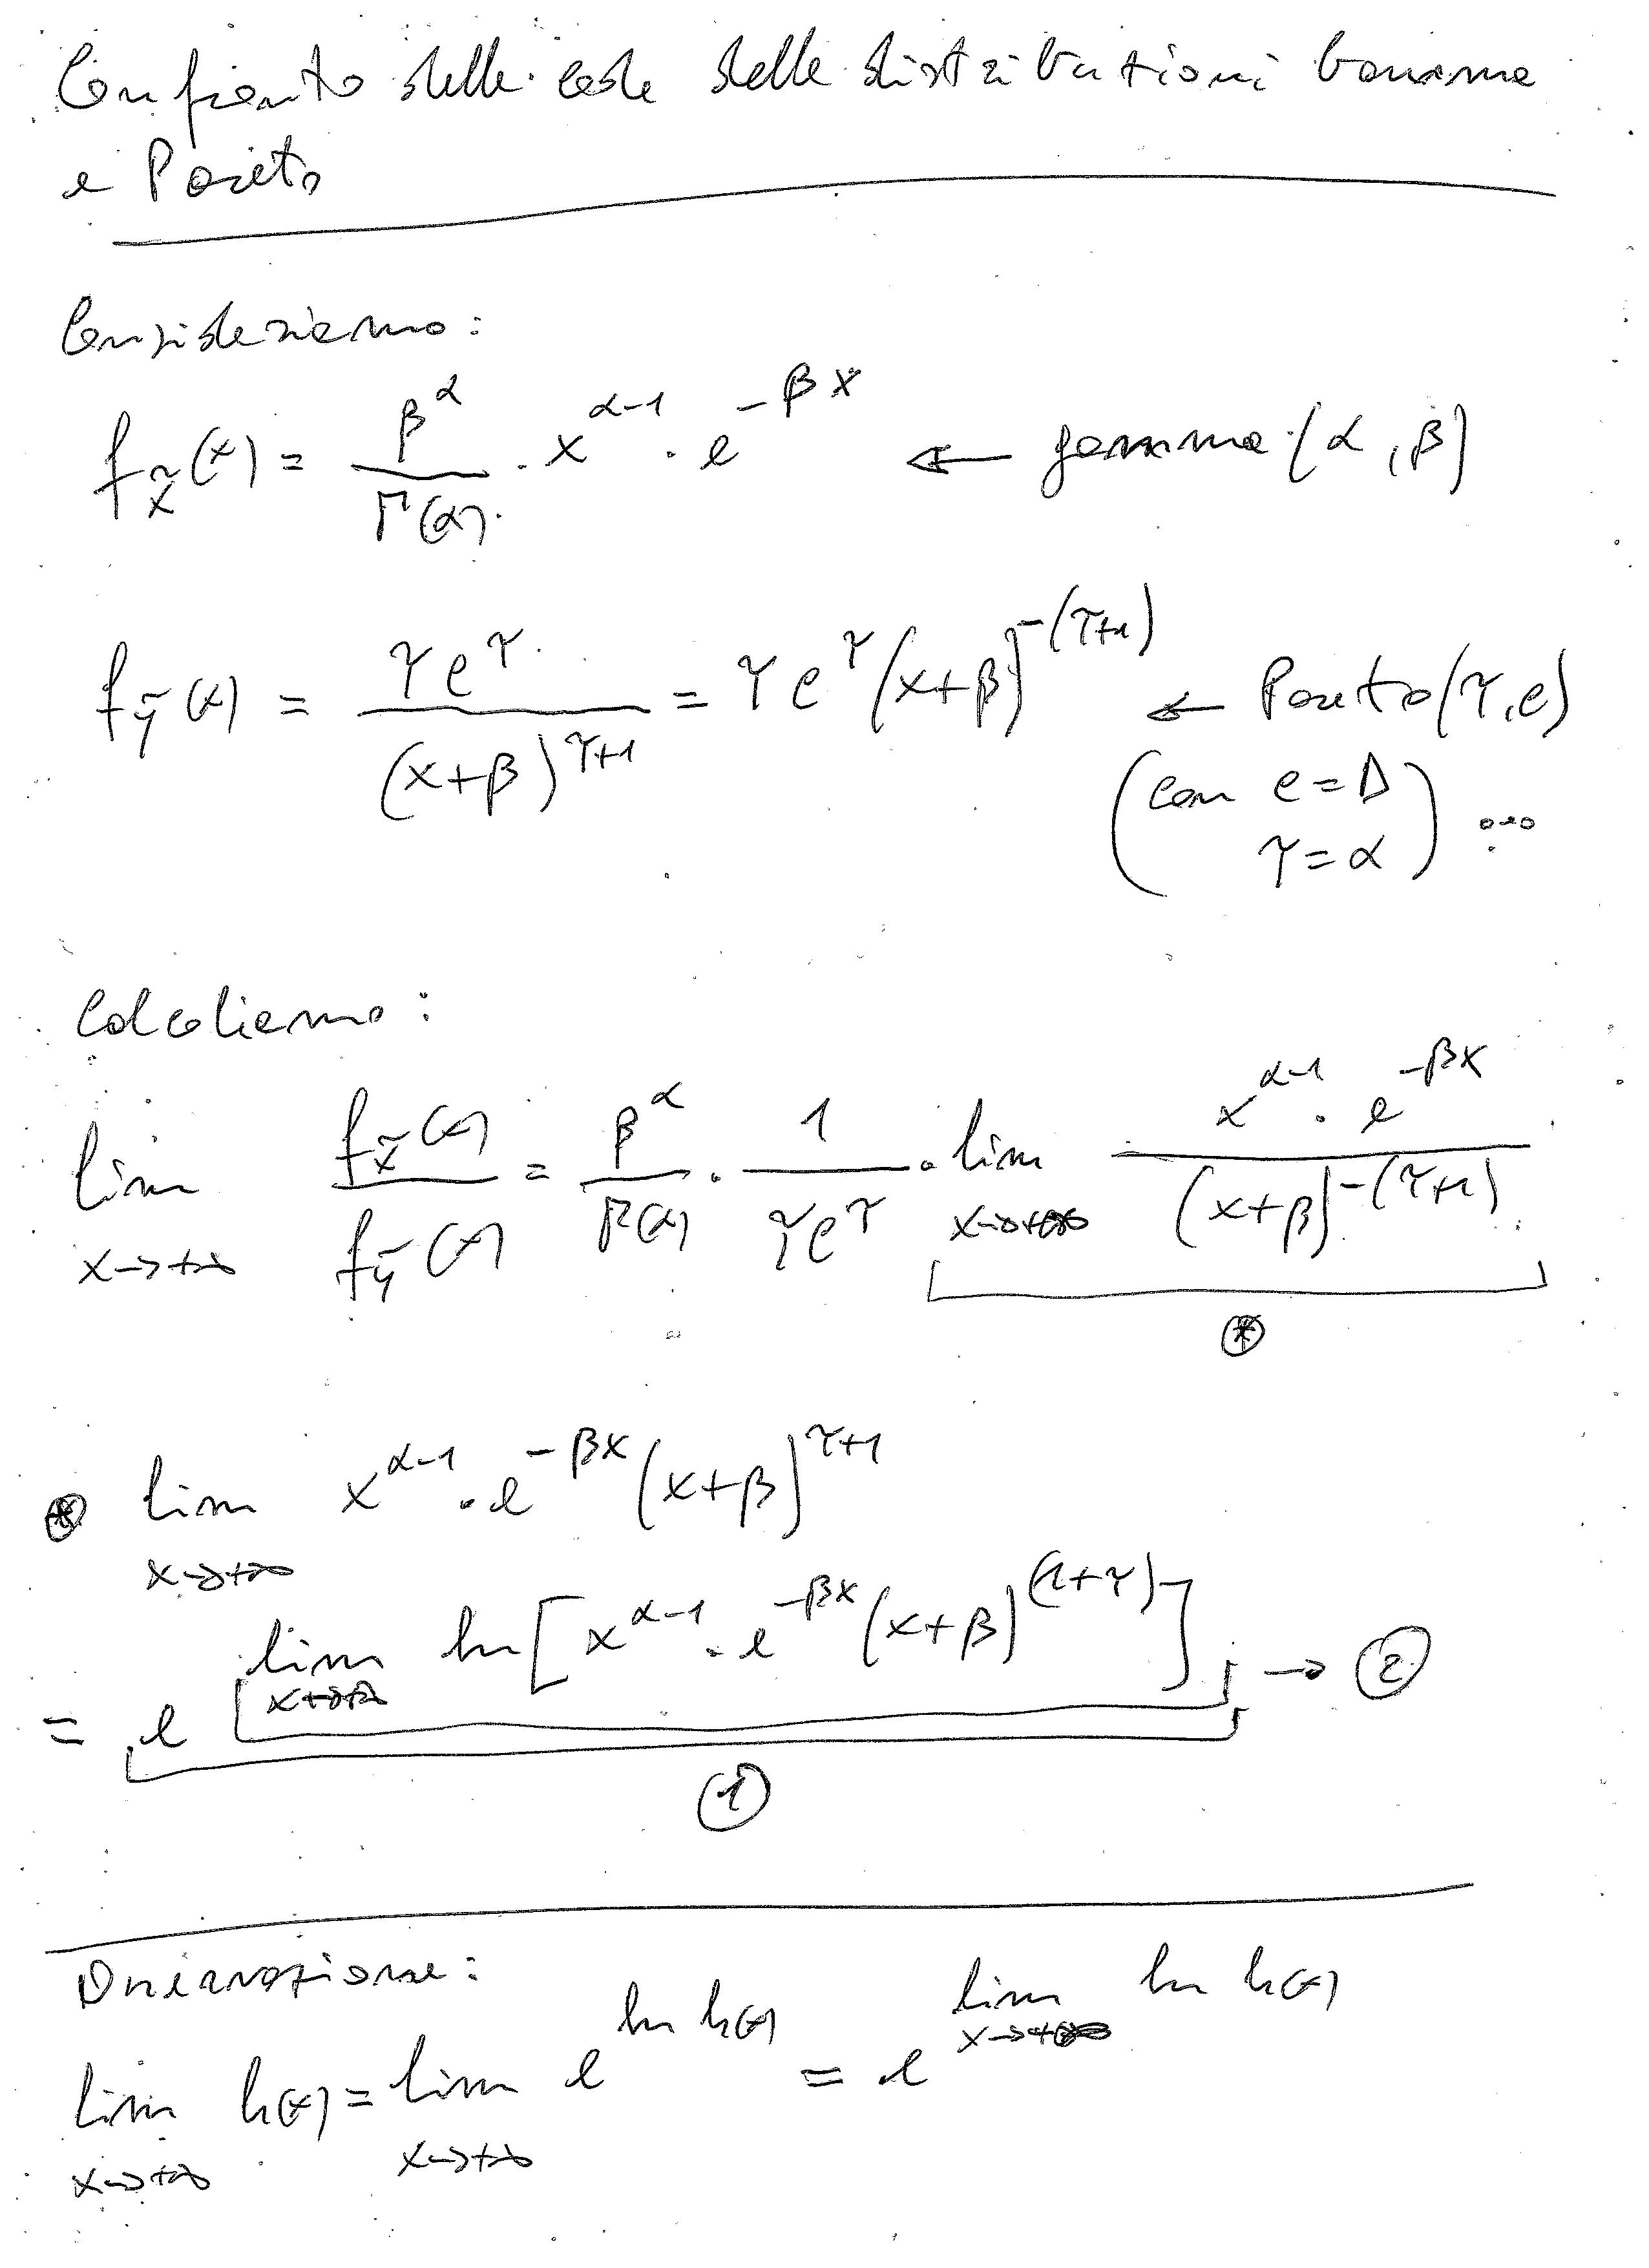 Confronto delle code delle distribuzioni Gamma
e Pareto
Consideriamo:
f_X̃(x) = β^α / Γ(α) · x^(α-1) · e^(-βx) ← gamma (α, β)
f_Ỹ(x) = γ ρ^γ / (x+β)^(γ+1) = γ ρ^γ (x+β)^(-(γ+1)) ← Pareto (γ, ρ)
(con ρ = Δ
γ = α) ...
Calcoliamo:
lim x→+∞ f_X̃(x) / f_Ỹ(x) = β^α / Γ(α) · 1 / (γ ρ^γ) · lim x→+∞ x^(α-1) · e^(-βx) / (x+β)^(-(γ+1))
⊛
⊛ lim x→+∞ x^(α-1) · e^(-βx) (x+β)^(γ+1)
= e^(lim x→+∞ ln [x^(α-1) · e^(-βx) (x+β)^(1+γ)]) → ②
①
Osservazione:
lim x→+∞ h(x) = lim x→+∞ e^(ln h(x)) = e^(lim x→+∞ ln h(x))